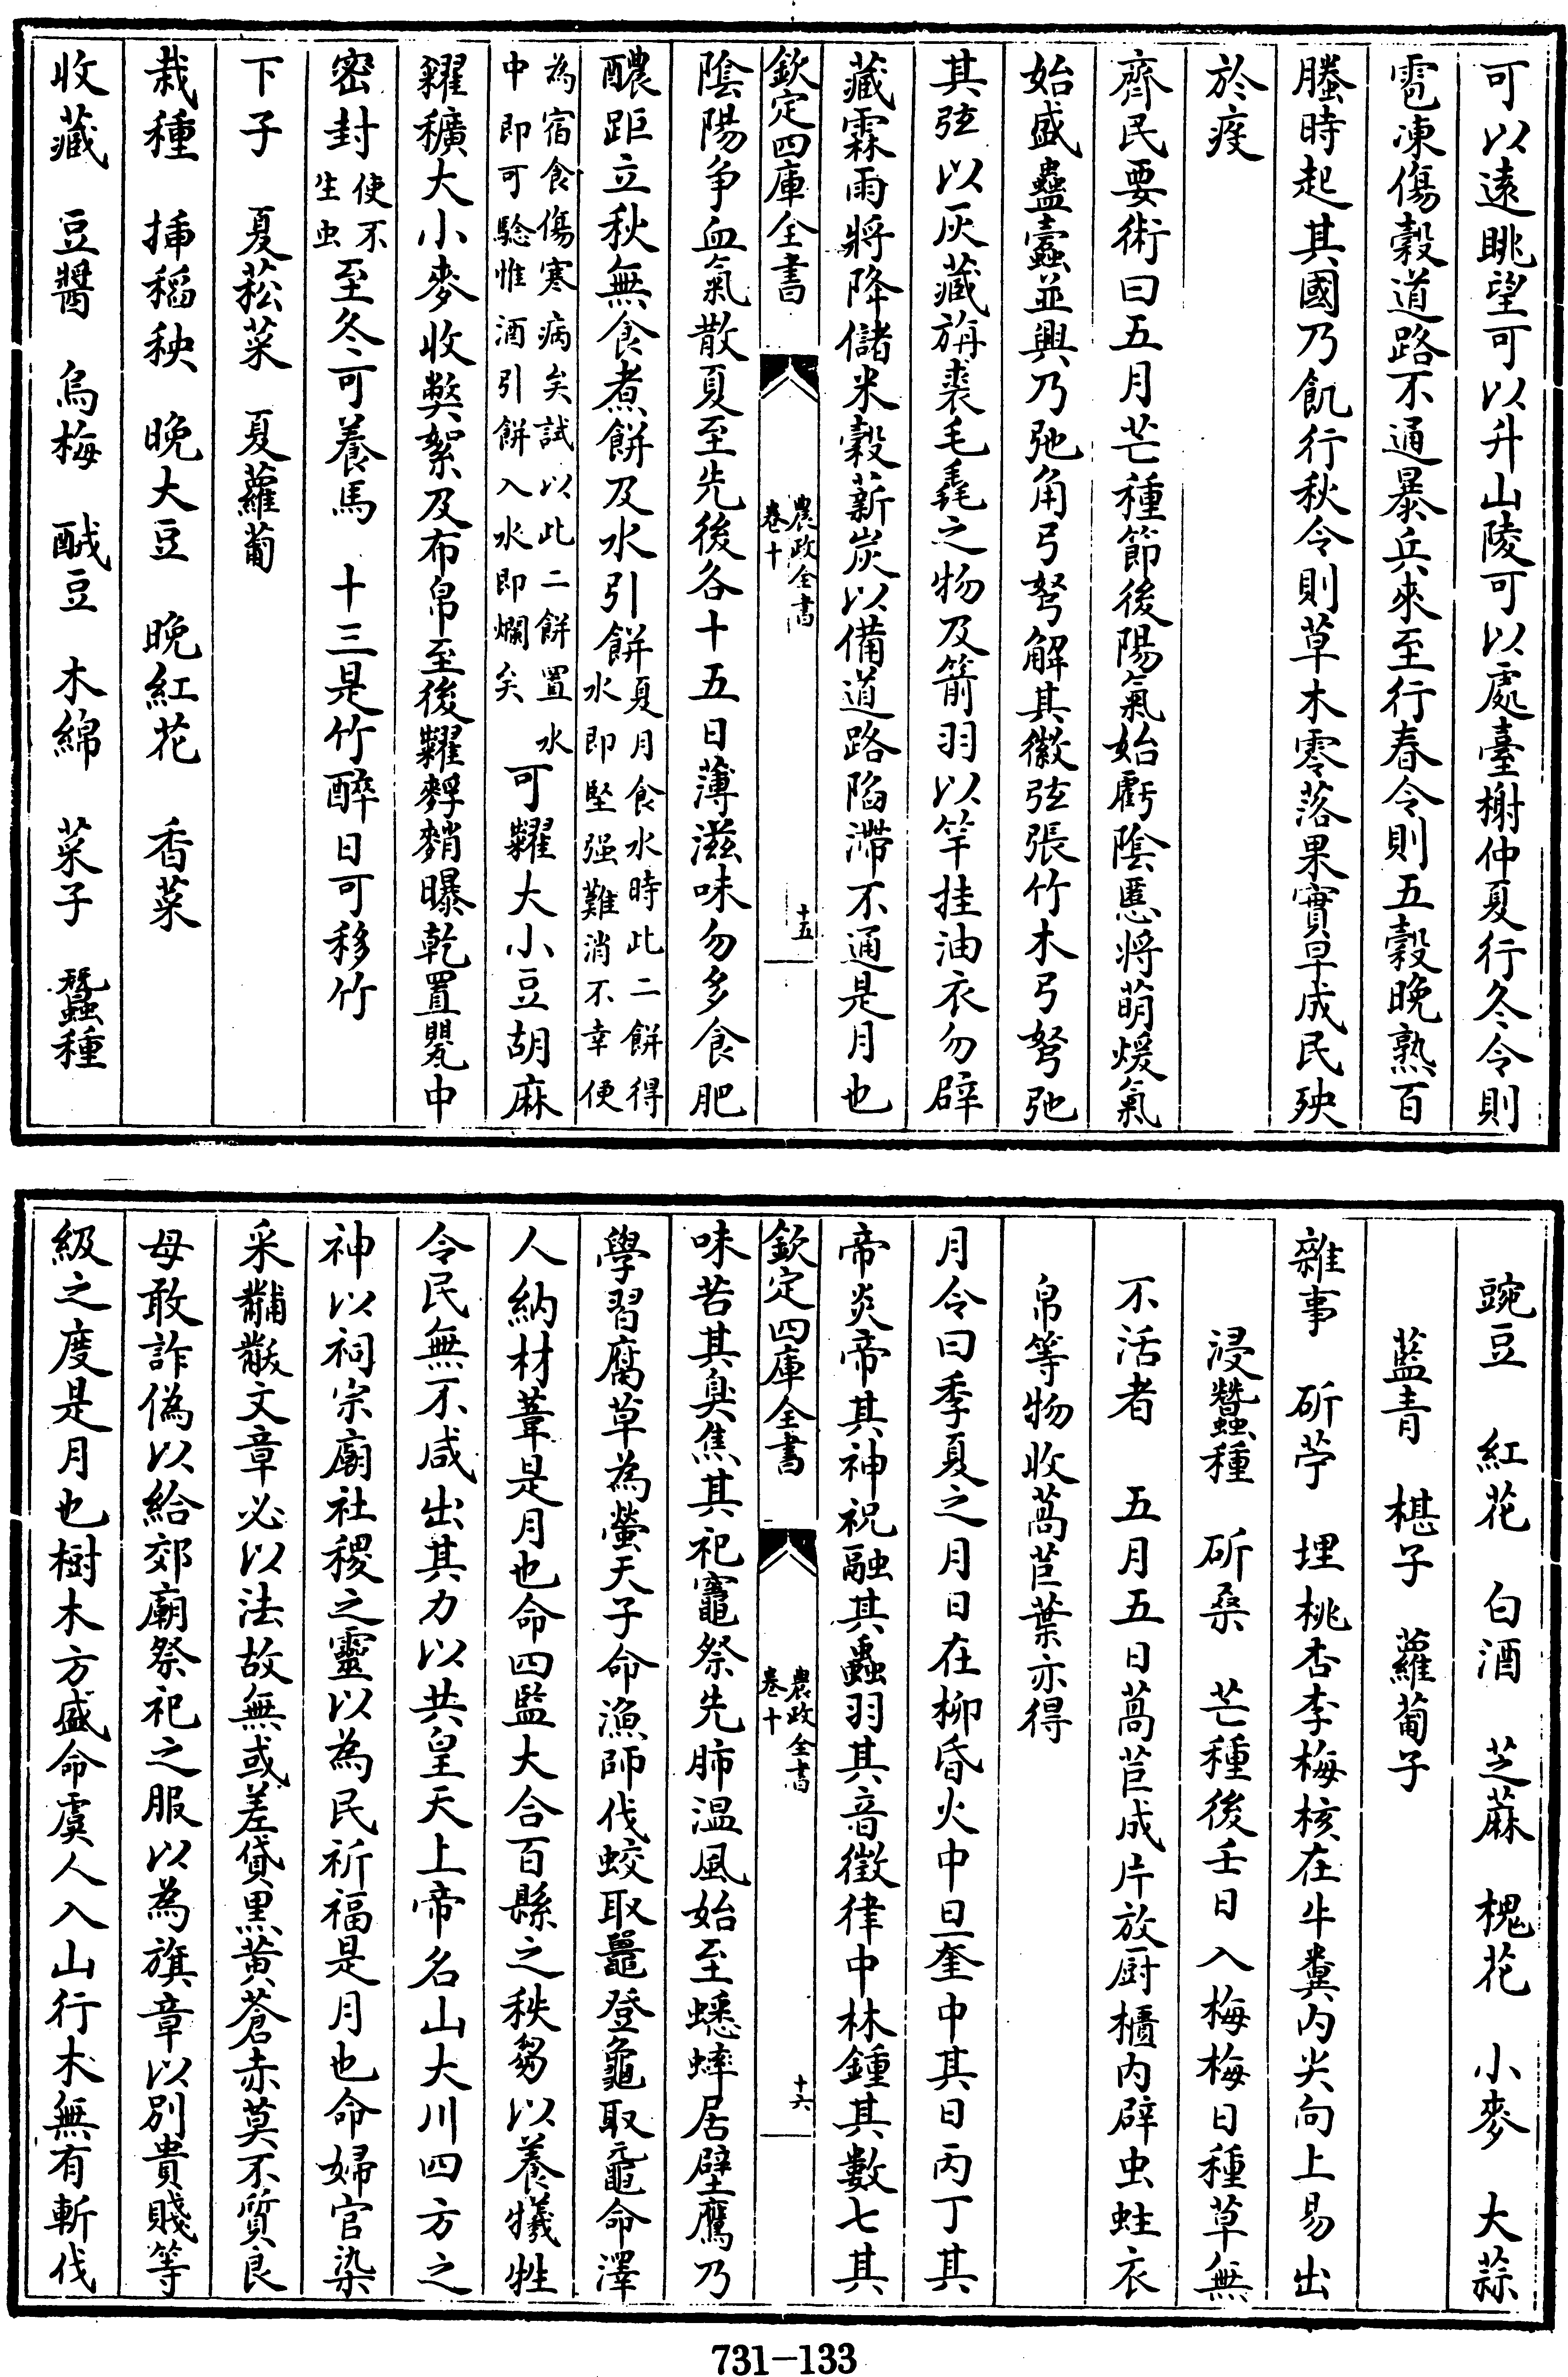 可以遠眺望可以升山陵可以處臺榭仲夏行冬令則
雹凍傷穀道路不通暴兵來至行春令則五穀晚熟百
螣時起其國乃飢行秋令則草木零落果實早成民殃
於疫
齊民要術曰五月芒種節後陽氣始虧陰慝將萌煖氣
始盛蠱蠹並興乃弛角弓弩解其徽弦張竹木弓弩弛
其弦以灰藏旃裘毛毳之物及箭羽以竿挂油衣勿辟
藏霖雨將降儲米穀薪炭以備道路陷滯不通是月也
欽定四庫全書
農政全書
卷十
十五
陰陽争血氣散夏至先後各十五日薄滋味勿多食肥
醲距立秋無食煮餅及水引餅夏月食水時此二餅得水即堅强難消不幸便
為宿食傷寒病矣試以此二餅置水中即可驗惟酒引餅入水即爛矣可糶大小豆胡麻
糴穬大小麥收弊絮及布帛至後糶䴸䴭曝乾置甖中
密封使不生虫至冬可養馬　十三是竹醉日可移竹
下子　夏菘菜　夏蘿蔔
栽種　插稻秧　晚大豆　晚紅花　香菜
收藏　豆醬　烏梅　醎豆　木綿　菜子　蠶種
豌豆　紅花　白酒　芝蔴　槐花　小麥　大蒜
藍青　椹子　蘿蔔子
雜事　斫苧　埋桃杏李梅核在牛糞内尖向上易出
浸蠶種　斫桑　芒種後壬日入梅梅日種草無
不活者　五月五日萵苣成片放厨櫃内辟虫蛀衣
帛等物收萵苣葉亦得
月令曰季夏之月日在柳昏火中旦奎中其日丙丁其
帝炎帝其神祝融其蟲羽其音徵律中林鍾其數七其
欽定四庫全書
農政全書
卷十
十六
味苦其臭焦其祀竈祭先肺温風始至蟋蟀居壁鷹乃
學習腐草為螢天子命漁師伐蛟取鼉登龜取黿命澤
人納材葦是月也命四監大合百縣之秩芻以養犧牲
令民無不咸出其力以共皇天上帝名山大川四方之
神以祠宗廟社稷之靈以為民祈福是月也命婦官染
采黼黻文章必以法故無或差貸黑黄蒼赤莫不質良
毋敢詐偽以給郊廟祭祀之服以為旗章以别貴賤等
級之度是月也樹木方盛命虞人入山行木無有斬伐
731-133